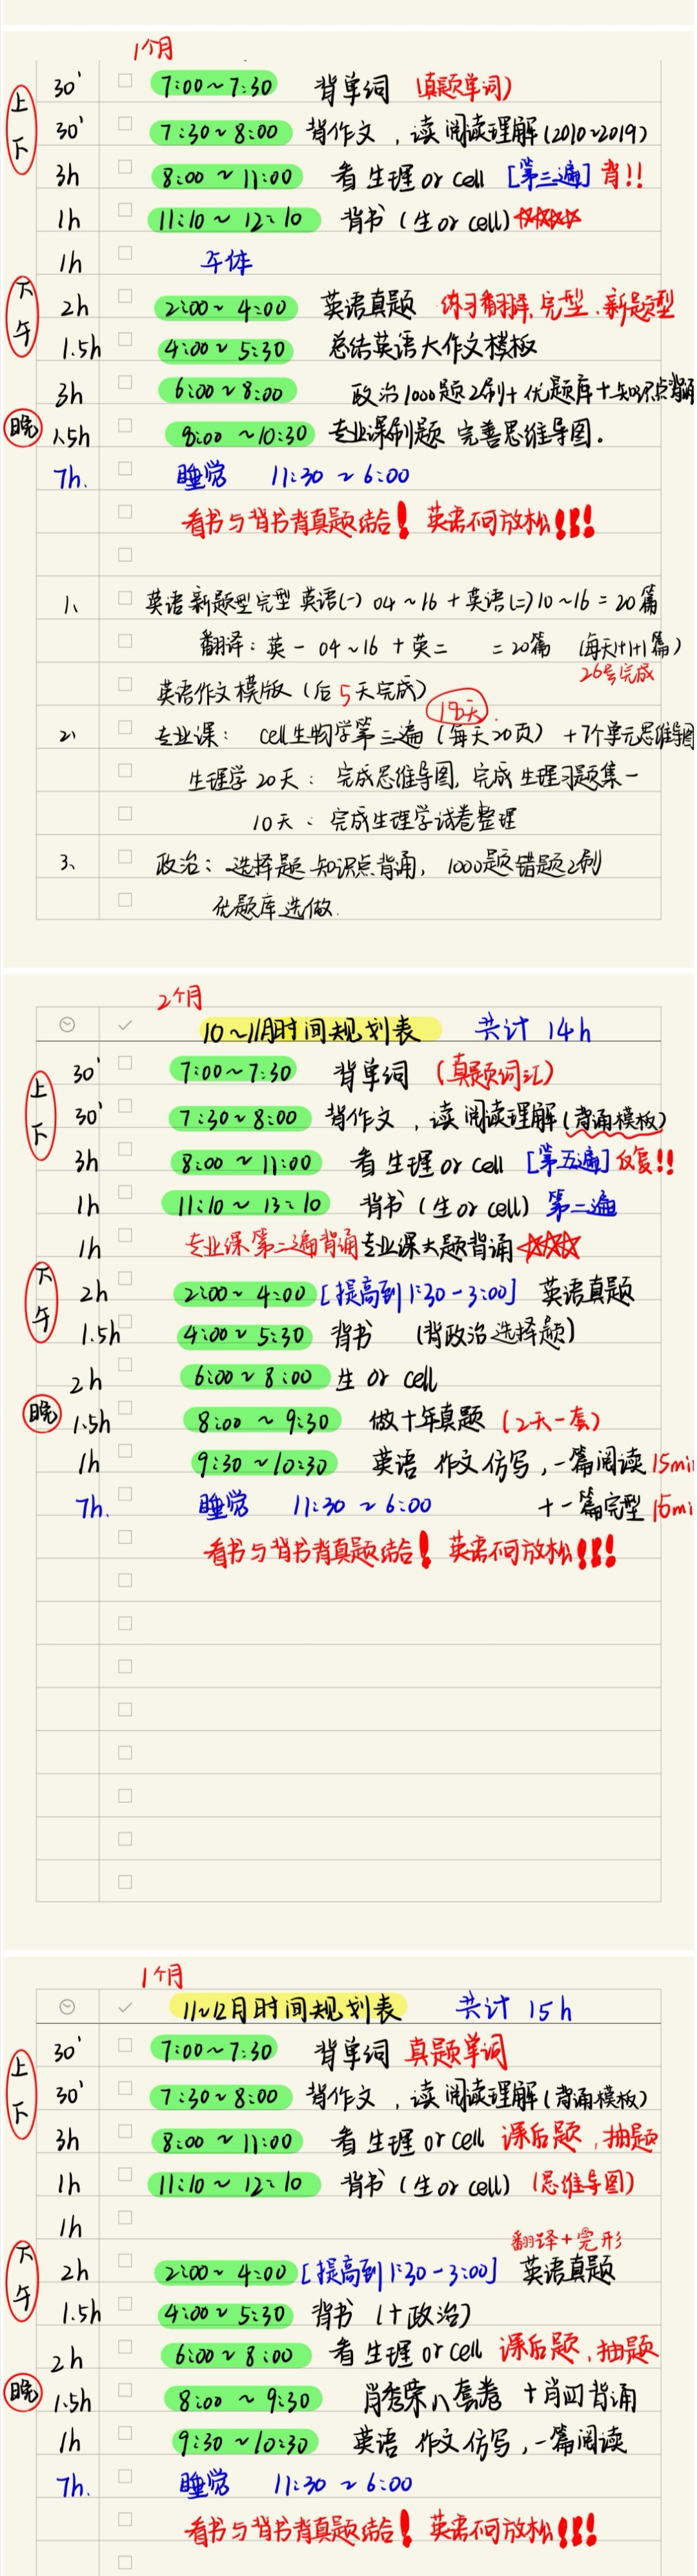 1个月
上下
30' 7:00~7:30 背单词 (真题单词)
30' 7:30~8:00 背作文，读阅读理解(2010~2019)
3h 8:00~11:00 看生理or cell [第三遍] 背!!
1h 11:10~12:10 背书(生or cell) ☆☆☆☆
1h 午休
下午
2h 2:00~4:00 英语真题 练习翻译,完型、新题型
1.5h 4:00~5:30 总结英语大作文模板
3h 6:00~8:00 政治1000题2刷+优题库+知识点背诵
晚
1.5h 8:00~10:30 专业课刷题 完善思维导图.
7h. 睡觉 11:30~6:00
看书与背书背真题结合! 英语不可放松!!!
1、 英语新题型完型英语(一) 04~16+英语(二)10~16=20篇
翻译:英一 04~16+英二 =20篇 (每天1+1篇)
26号完成
英语作文模版(后5天完成)
18天.
2、 专业课: cell生物学第三遍(每天20页) +7个单元思维导图
生理学20天: 完成思维导图,完成生理习题集一
10天: 完成生理学试卷整理
3、 政治: 选择题知识点背诵, 1000题错题2刷
优题库选做.
2个月
10~11月时间规划表 共计 14h
上下
30' 7:00~7:30 背单词 (真题词汇)
30' 7:30~8:00 背作文，读阅读理解(背诵模板)
3h 8:00~11:00 看生理or cell [第五遍]反复!!
1h 11:10~13:10 背书(生or cell) 第二遍
1h 专业课第二遍背诵 专业课大题背诵☆☆☆
下午
2h 2:00~4:00 [提高到1:30-3:00] 英语真题
1.5h 4:00~5:30 背书 (背政治选择题)
2h 6:00~8:00 生 or cell
晚
1.5h 8:00~9:30 做十年真题 (2天一套)
1h 9:30~10:30 英语 作文仿写,一篇阅读15mi
7h. 睡觉 11:30~6:00 +一篇完型15mi
看书与背书背真题结合! 英语不可放松!!!
1个月
11~12月时间规划表 共计 15h
上下
30' 7:00~7:30 背单词 真题单词
30' 7:30~8:00 背作文，读阅读理解(背诵模板)
3h 8:00~11:00 看生理or cell 课后题,抽题
1h 11:10~12:10 背书(生or cell) (思维导图)
1h
翻译+完形
下午
2h 2:00~4:00 [提高到1:30-3:00] 英语真题
1.5h 4:00~5:30 背书 (+政治)
2h 6:00~8:00 看生理or cell 课后题,抽题
晚
1.5h 8:00~9:30 肖秀荣八套卷 +肖四背诵
1h 9:30~10:30 英语 作文仿写,一篇阅读
7h. 睡觉 11:30~6:00
看书与背书背真题结合! 英语不可放松!!!